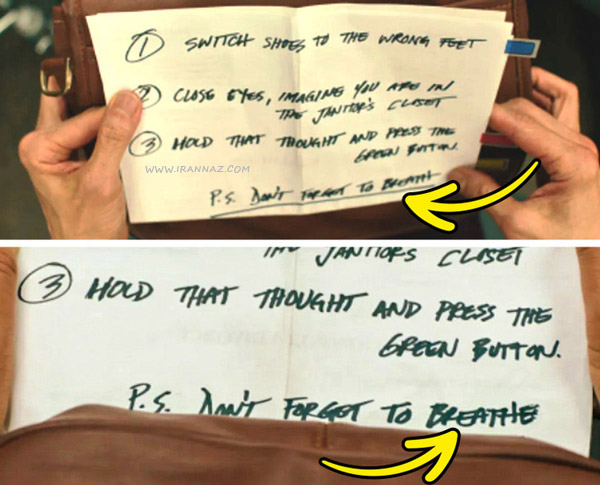 ① SWITCH SHOES TO THE WRONG FEET
② CLOSE EYES, IMAGING YOU ARE IN
THE JANITOR'S CLOSET
③ HOLD THAT THOUGHT AND PRESS THE
GREEN BUTTON.
WWW.IRANNAZ.COM
P.S. DON'T FORGET TO BREATH
THE JANITOR'S CLOSET
③ HOLD THAT THOUGHT AND PRESS THE
GREEN BUTTON.
P.S. DON'T FORGET TO BREATHE